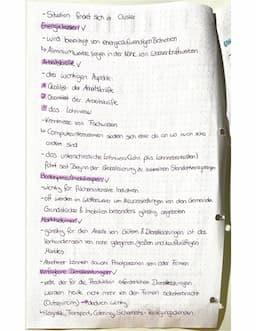 - Situation findet sich in Cluster
Energiekosten ✓
- wird benötigt von energieaufwendigen Betrieben
↳ Aluminiumwerke liegen in der Nähe von Wasserkraftwerken
Arbeitskräfte ✓
- drei wichtigen Aspekte:
1 Qualität der Arbeitskräfte
2 Quantität der Arbeitskräfte
3 das Lohnniveau
- Kenntnisse von Fachwissen
↳ Computerunternehmen siedeln sich eher da an wo auch viele
andere sind
- das unterschiedliche Lohnniveau (plus Lohnnebenkosten)
führt seit Beginn der Globalisierung zu weltweiten Standortverlagerungen
Bodenpreise/Immobilienpreise ✓
- wichtig für flächenintensive Industrien
- oft werden im Wettbewerb um Neuansiedlungen von den Gemeinden
Grundstücke & Immobilien besonders günstig angeboten
Marktnähe ✓
- günstig für den Absatz von Gütern & Dienstleistungen ist das
Vorhandensein von nahe gelegenen großen und kaufkräftigen
Märkten
- Abnehmer können sowohl Privatpersonen sein oder Firmen
Verfügbare Dienstleistungen ✓
- viele der für die Produktion erforderlichen Dienstleistungen
werden heute nicht mehr in den Firmen selbst erbracht
(Outsourcing) → dadurch wichtig
↳ Logistik, Transport, Catering, Sicherheits-, Reinigungsdienst